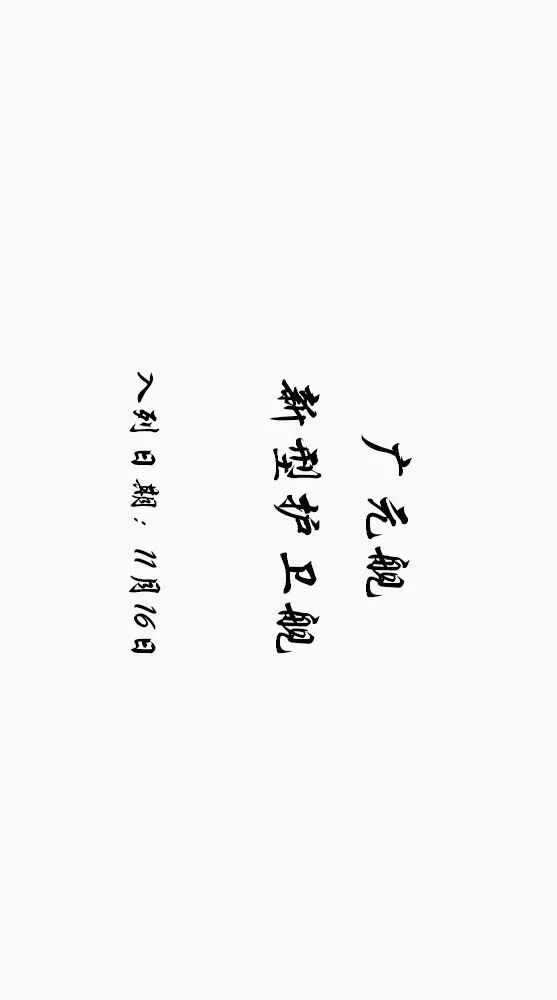 广元舰
新型护卫舰
入列日期：11月16日